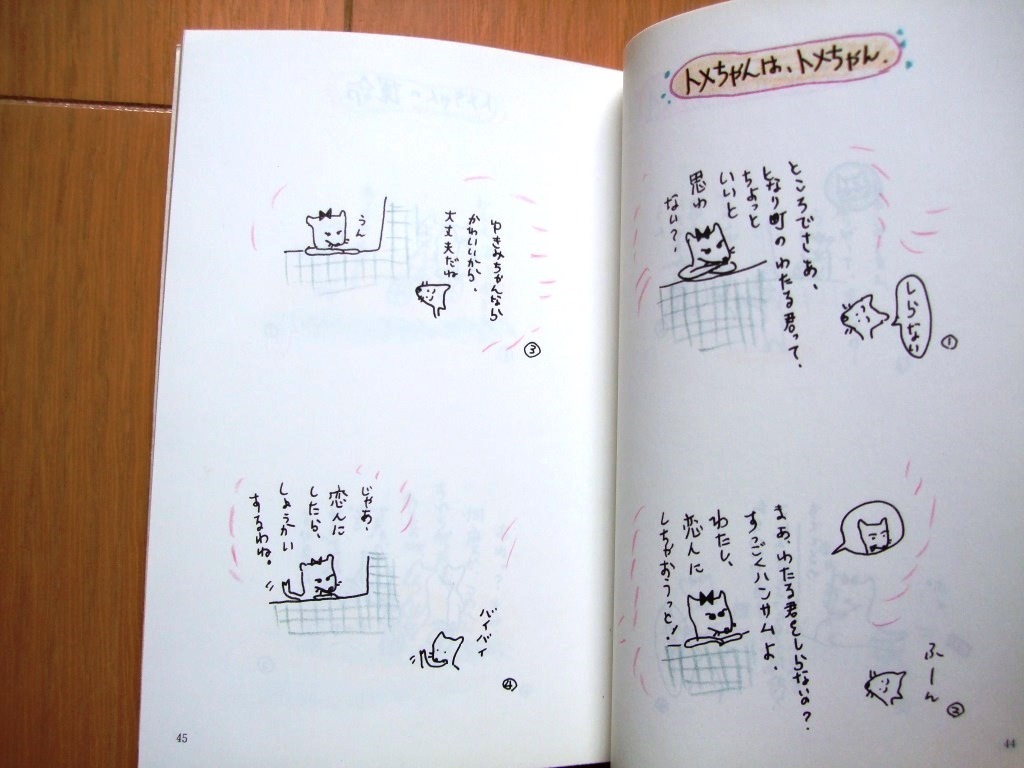 トメちゃんは、トメちゃん.
ところでさあ、
となり町のわたる君って、
ちょっと
いいと
思わ
ない?
しらない
①
まあ、わたる君をしらないの?
すっごくハンサムよ、
わたし、
恋人に
しちゃおうっと!
ふーん
②
44
ゆきみちゃんなら
かわいいから、
大丈夫だね
うん
③
じゃあ、
恋人に
したら、
しょうかい
するわね。
バイバイ
④
45